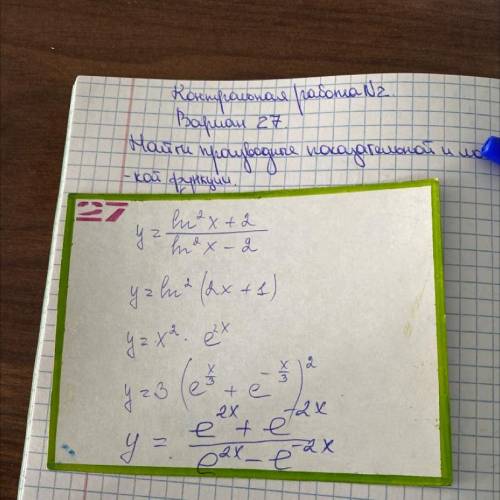 Контрольная работа N2.
Вариан 27.
Найти производные показательной и ло
-кой функции.
27
y = (ln²x + 2)/(ln²x - 2)
y = ln² (2x + 1)
y = x² · e^{2x}
y = 3 (e^{x/3} + e^{-x/3})²
y = (e^{2x} + e^{-2x})/(e^{2x} - e^{-2x})